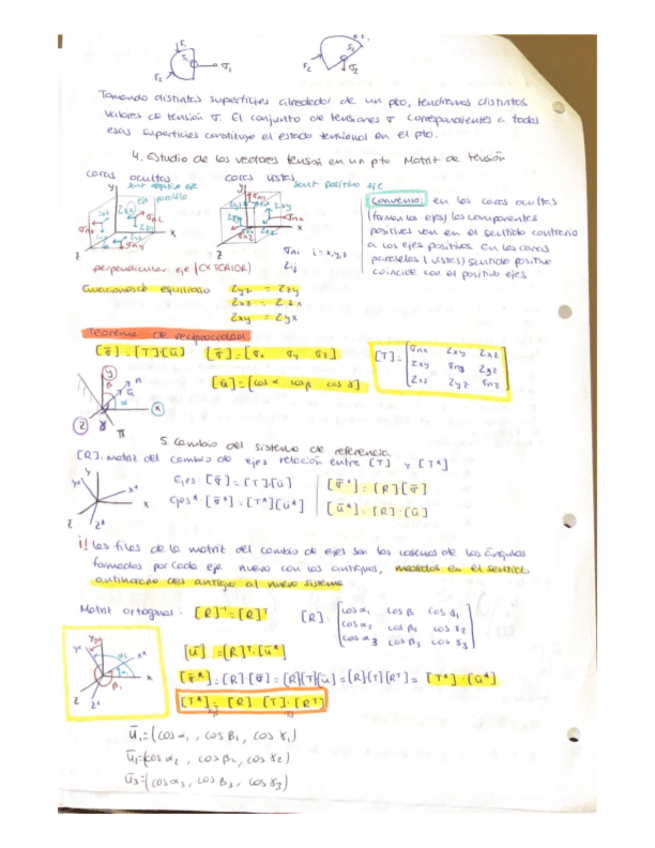 F1
S1
σ1
F2
F2
S2
σ2
Tomando distintas superficies alrededor de un pto, tendremos distintos
valores de tensión σ. El conjunto de tensiones σ correspondientes a todas
esas superficies constituye el estado tensional en el pto.
4. Estudio de los vectores tension en un pto Matriz de tensión
caras ocultas
sent negativo eje
paralelo
caras vistas
sent positivo eje
Convenio: en las caras ocultas
(forman los ejes) las componentes
positivas van en el sentido contrario
a los ejes positivos. En las caras
paralelas (vistas) sentido positivo
coincide con el positivo ejes
σni i=x,y,z
Zij
perpendicular eje (EXTERIOR)
equilibrio Zyz = Zzy
Zxz = Zzx
Zxy = Zyx
Teorema de reciprocidad
[σ̄] = [T][ū] [σ̄] = [σx σy σz]
[ū] = [cos α cos β cos γ]
[T] = [σnx Zxy Zxz
Zxy σny Zyz
Zxz Zyz σnz]
5 Cambio del sistema de referencia
[R]: matriz del cambio de ejes relación entre [T] y [T*]
Ejes: [σ̄] = [T]·[ū]
Ejes*: [σ̄*] = [T*][ū*]
[σ̄*] = [R][σ̄]
[ū*] = [R]·[ū]
¡! Las filas de la matriz del cambio de ejes son los cosenos de los ángulos
formados por cada eje nuevo con los antiguos, medidos en el sentido
antihorario del antiguo al nuevo sistema.
Matriz ortogonal: [R]⁻¹ = [R]ᵀ
[R] = [cos α1 cos β1 cos γ1
cos α2 cos β2 cos γ2
cos α3 cos β3 cos γ3]
[ū] = [R]ᵀ·[ū*]
[σ̄*] = [R]·[σ̄] = [R][T][ū] = [R][T][Rᵀ] = [T*]·[ū*]
[T*] = [R] [T]·[Rᵀ]
ū1 = (cos α1, cos β1, cos γ1)
ū2 = (cos α2, cos β2, cos γ2)
ū3 = (cos α3, cos β3, cos γ3)